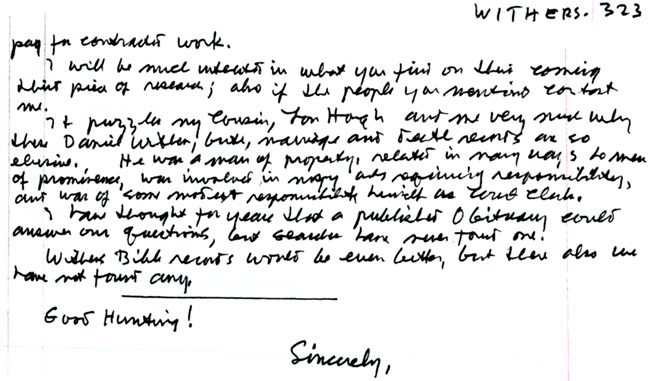 WITHERS. 323
pay for contracted work.
I will be much interested in what you find on this coming
third piece of research; also if the people you mention contact
me.
It puzzles my cousin, Hough and me very much why
this Daniel Withers, birth, marriage and death records are so
elusive. He was a man of property, related in many ways to men
of prominence, was involved in many acts requiring responsibility,
and was of some modest responsibility himself as Court Clerk.
I have thought for years that a published Obituary could
answer our questions, but searches have never found one.
Withers Bible records would be even better, but these also we
have not found any.
Good Hunting!
Sincerely,